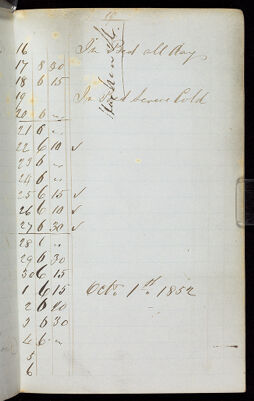 16 In Bed all day
17 8 30
18 6 15
19 In Bed Severe Cold
20 6 "
21 6 "
22 6 10 ✓
23 6 "
24 6 "
25 6 15 ✓
26 6 10 ✓
27 6 30 ✓
28 "
29 6 30
30 6 15
1 6 15 Octr. 1st. 1852
2 6 20
3 6 30
4 6 "
5
6